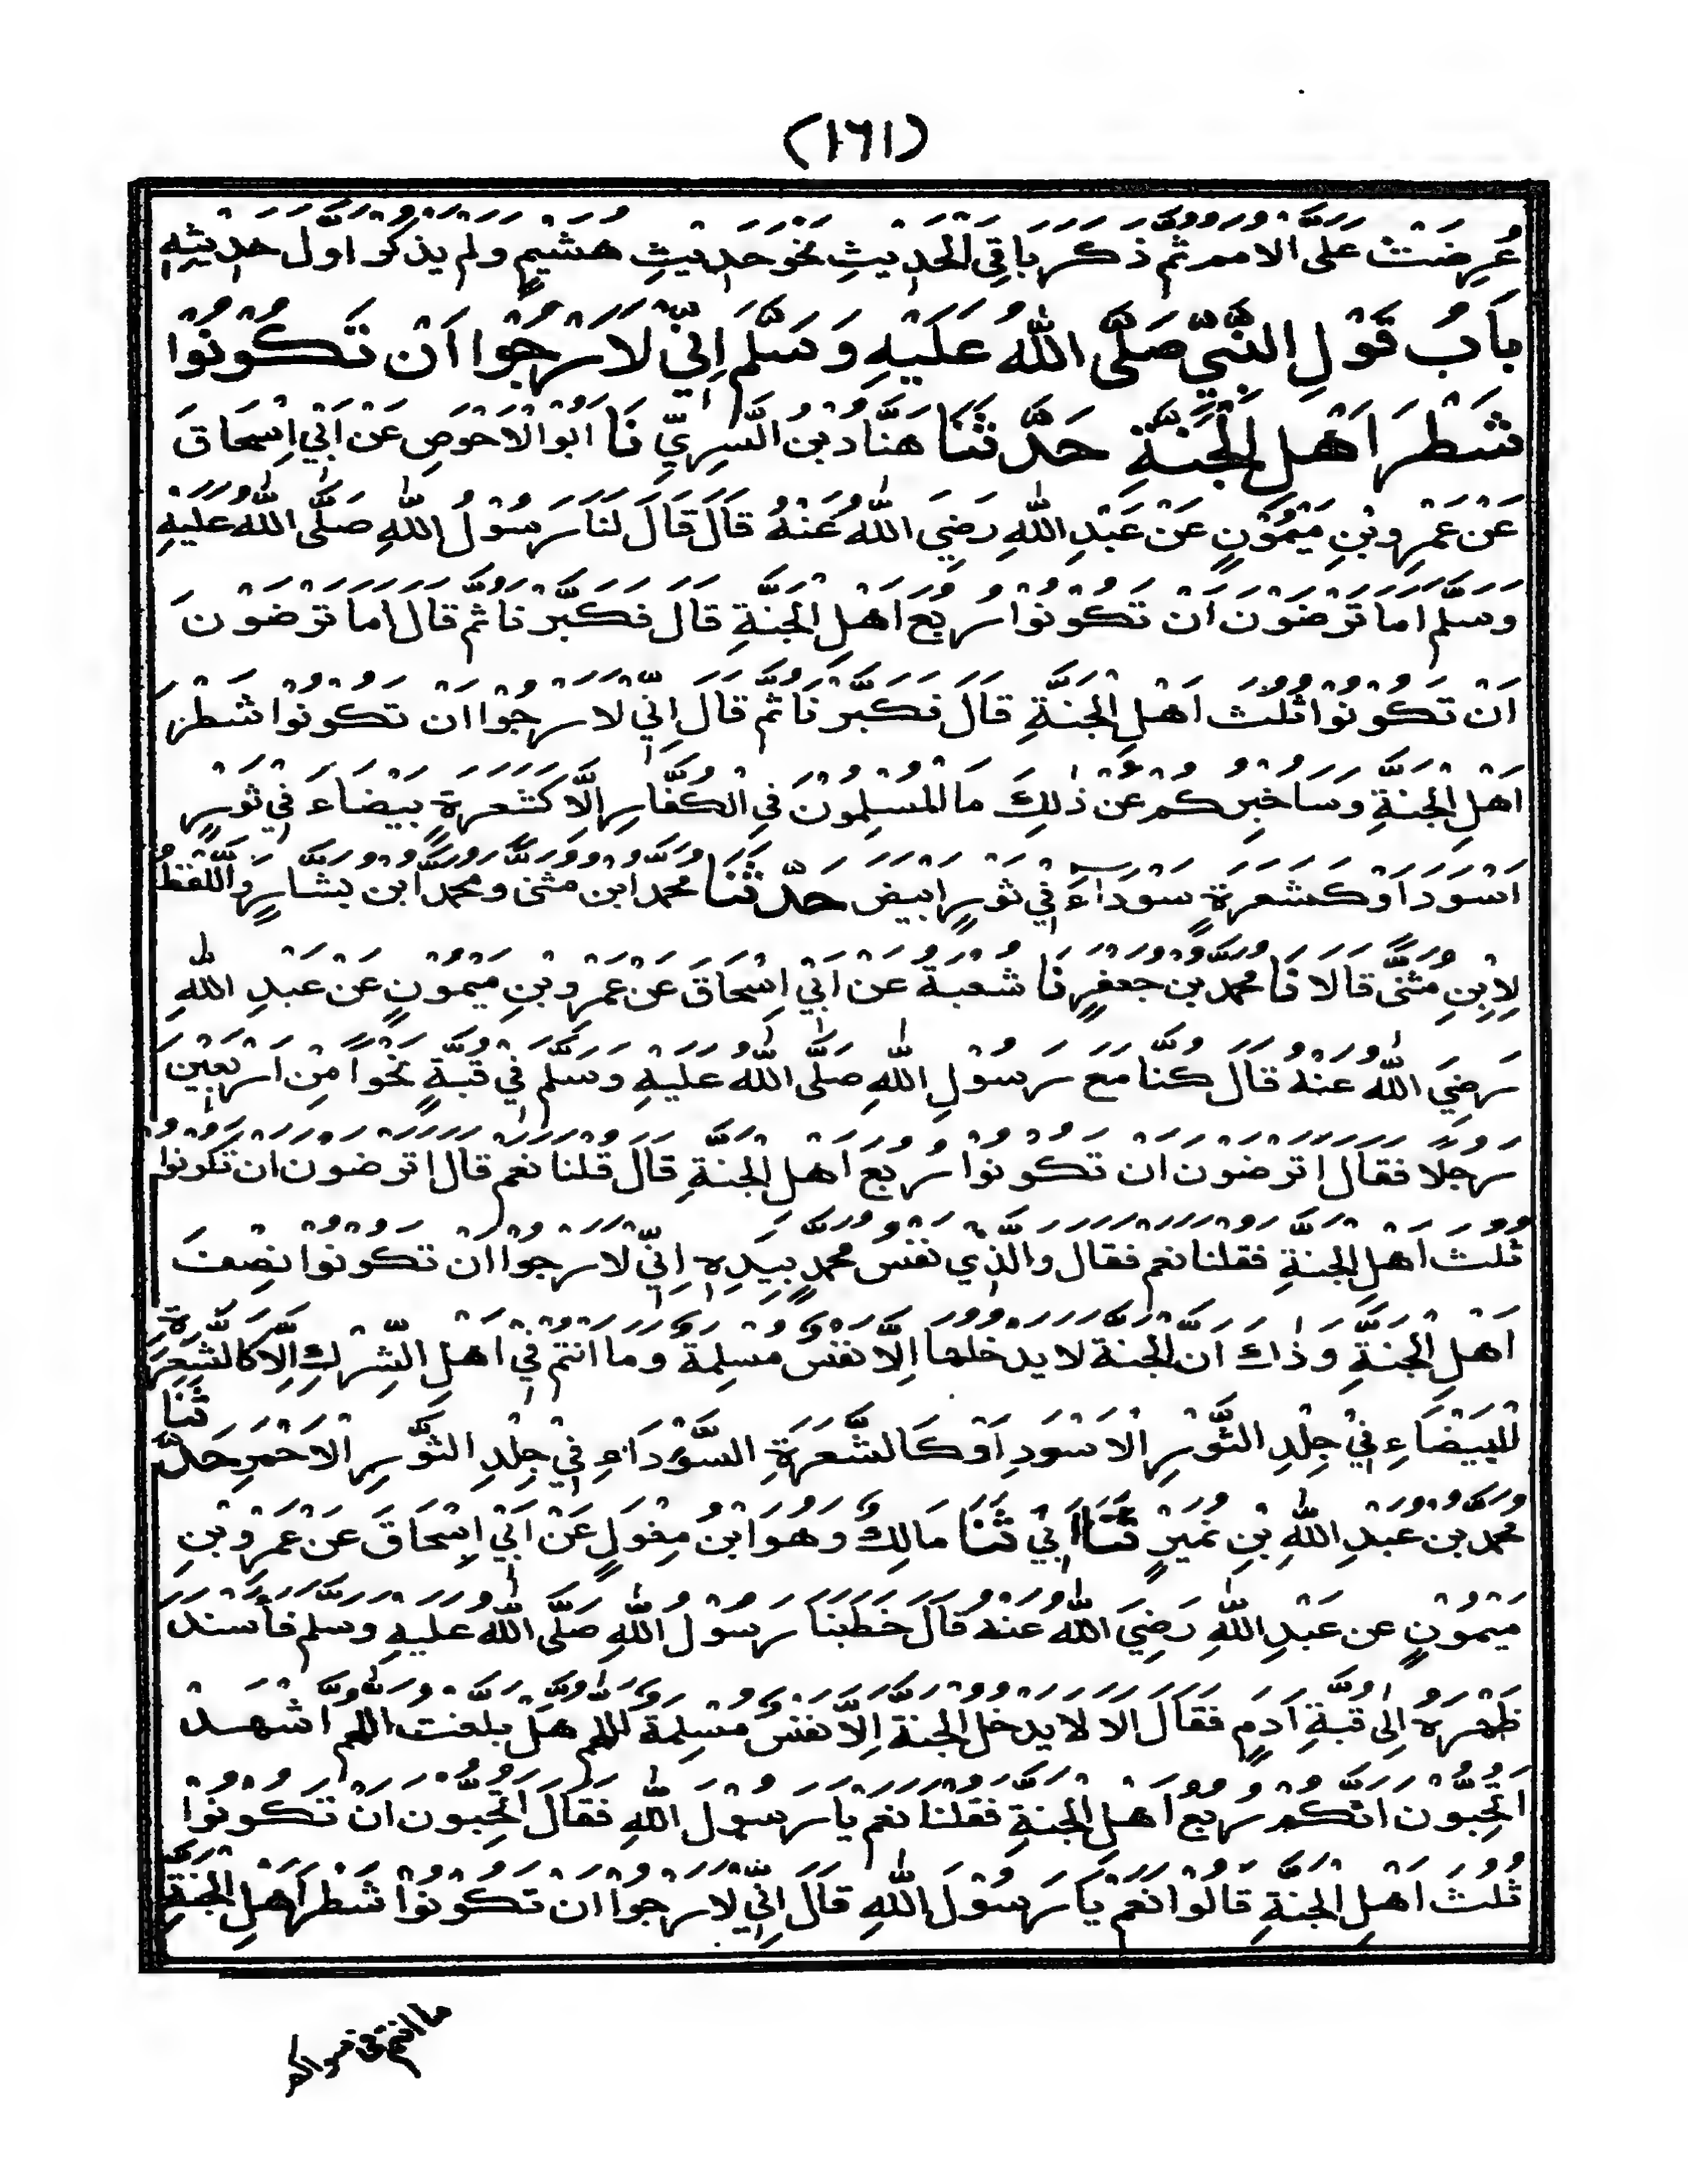 (١٦١)
عُرِضَتْ عَلَى الْاُمَمُ ثُمَّ ذَكَرَ بَاقِيَ الْحَدِيثِ نَحْوَ حَدِيْثِ هُشَيْمٍ وَلَمْ يَذْكُرْ اَوَّلَ حَدِيْثِهِ
بَابُ قَوْلِ النَّبِيِّ صَلَّى اللّٰهُ عَلَيْهِ وَسَلَّمَ اِنِّيْ لَاَرْجُوْا اَنْ تَكُوْنُوْا
شَطْرَ اَهْلِ الْجَنَّةِ حَدَّثَنَا هَنَّادُ بْنُ السَّرِيِّ نَا اَبُو الْاَحْوَصِ عَنْ اَبِيْ اِسْحَاقَ
عَنْ عَمْرِو بْنِ مَيْمُوْنٍ عَنْ عَبْدِ اللّٰهِ رَضِيَ اللّٰهُ عَنْهُ قَالَ قَالَ لَنَا رَسُوْلُ اللّٰهِ صَلَّى اللّٰهُ عَلَيْهِ
وَسَلَّمَ اَمَا تَرْضَوْنَ اَنْ تَكُوْنُوْا رُبُعَ اَهْلِ الْجَنَّةِ قَالَ فَكَبَّرْنَا ثُمَّ قَالَ اَمَا تَرْضَوْنَ
اَنْ تَكُوْنُوْا ثُلُثَ اَهْلِ الْجَنَّةِ قَالَ فَكَبَّرْنَا ثُمَّ قَالَ اِنِّيْ لَاَرْجُوْا اَنْ تَكُوْنُوْا شَطْرَ
اَهْلِ الْجَنَّةِ وَسَاُخْبِرُكُمْ عَنْ ذٰلِكَ مَا الْمُسْلِمُوْنَ فِي الْكُفَّارِ اِلَّا كَشَعْرَةٍ بَيْضَاءَ فِيْ ثَوْرٍ
اَسْوَدَ اَوْ كَشَعْرَةٍ سَوْدَآءَ فِيْ ثَوْرٍ اَبْيَضَ حَدَّثَنَا مُحَمَّدُ ابْنُ مُثَنًّى وَمُحَمَّدُ ابْنُ بَشَّارٍ وَاللَّفْظُ
لِابْنِ مُثَنًّى قَالَا نَا مُحَمَّدُ بْنُ جَعْفَرٍ نَا شُعْبَةُ عَنْ اَبِيْ اِسْحَاقَ عَنْ عَمْرِو بْنِ مَيْمُوْنٍ عَنْ عَبْدِ اللّٰهِ
رَضِيَ اللّٰهُ عَنْهُ قَالَ كُنَّا مَعَ رَسُوْلِ اللّٰهِ صَلَّى اللّٰهُ عَلَيْهِ وَسَلَّمَ فِيْ قُبَّةٍ نَحْوًا مِنْ اَرْبَعِيْنَ
رَجُلًا فَقَالَ اَتَرْضَوْنَ اَنْ تَكُوْنُوْا رُبُعَ اَهْلِ الْجَنَّةِ قَالَ قُلْنَا نَعَمْ قَالَ اَتَرْضَوْنَ اَنْ تَكُوْنُوْا
ثُلُثَ اَهْلِ الْجَنَّةِ فَقُلْنَا نَعَمْ فَقَالَ وَالَّذِيْ نَفْسُ مُحَمَّدٍ بِيَدِهِ اِنِّيْ لَاَرْجُوْا اَنْ تَكُوْنُوْا نِصْفَ
اَهْلِ الْجَنَّةِ وَذٰاكَ اَنَّ الْجَنَّةَ لَا يَدْخُلُهَا اِلَّا نَفْسٌ مُسْلِمَةٌ وَمَا اَنْتُمْ فِيْ اَهْلِ الشِّرْكِ اِلَّا كَالشَّعْرَةِ
الْبَيْضَاءِ فِيْ جِلْدِ الثَّوْرِ الْاَسْوَدِ اَوْ كَالشَّعْرَةِ السَّوْدَاءِ فِيْ جِلْدِ الثَّوْرِ الْاَحْمَرِ حَدَّثَنَا
مُحَمَّدُ بْنُ عَبْدِ اللّٰهِ بْنِ نُمَيْرٍ ثَنَا اَبِيْ ثَنَا مَالِكٌ وَهُوَ ابْنُ مِغْوَلٍ عَنْ اَبِيْ اِسْحَاقَ عَنْ عَمْرِو بْنِ
مَيْمُوْنٍ عَنْ عَبْدِ اللّٰهِ رَضِيَ اللّٰهُ عَنْهُ قَالَ خَطَبَنَا رَسُوْلُ اللّٰهِ صَلَّى اللّٰهُ عَلَيْهِ وَسَلَّمَ فَأَسْنَدَ
ظَهْرَهُ اِلٰى قُبَّةِ اَدَمٍ فَقَالَ اَلَا لَا يَدْخُلُ الْجَنَّةَ اِلَّا نَفْسٌ مُسْلِمَةٌ اَللّٰهُمَّ هَلْ بَلَّغْتُ اَللّٰهُمَّ اشْهَدْ
اَتُحِبُّوْنَ اَنَّكُمْ رُبُعُ اَهْلِ الْجَنَّةِ فَقُلْنَا نَعَمْ يَا رَسُوْلَ اللّٰهِ فَقَالَ اَتُحِبُّوْنَ اَنْ تَكُوْنُوْا
ثُلُثَ اَهْلِ الْجَنَّةِ قَالُوْا نَعَمْ يَا رَسُوْلَ اللّٰهِ قَالَ اِنِّيْ لَاَرْجُوْا اَنْ تَكُوْنُوْا شَطْرَ اَهْلِ الْجَنَّةِ
ما انتم في سواكم